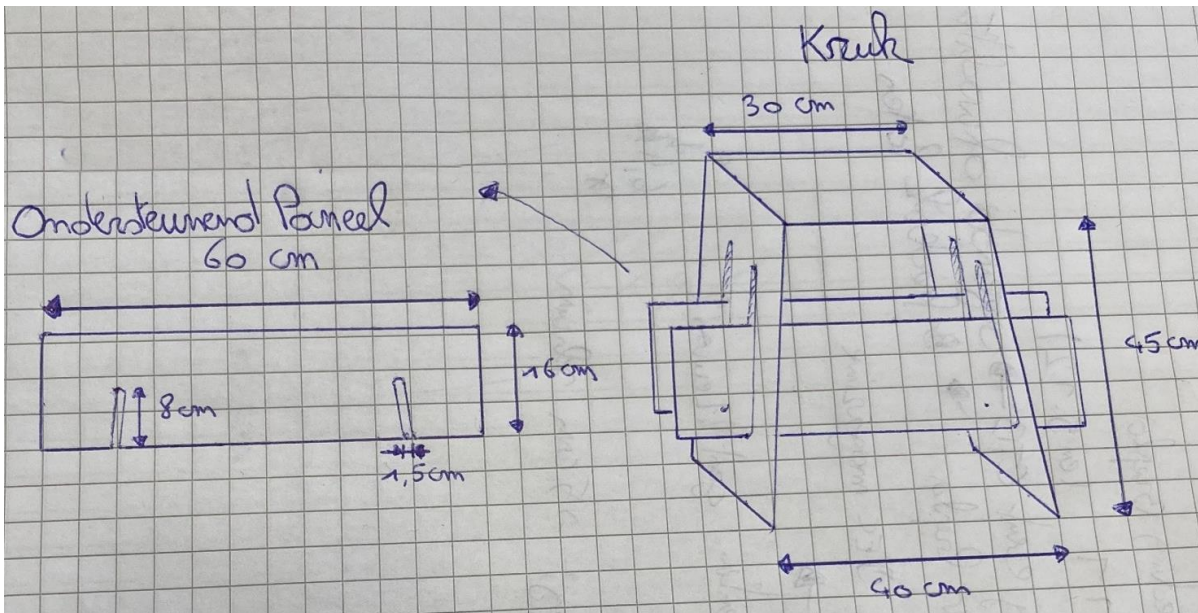 Kruk
30 cm
Ondersteunend Paneel
60 cm
16cm
8cm
1,5cm
45cm
40cm